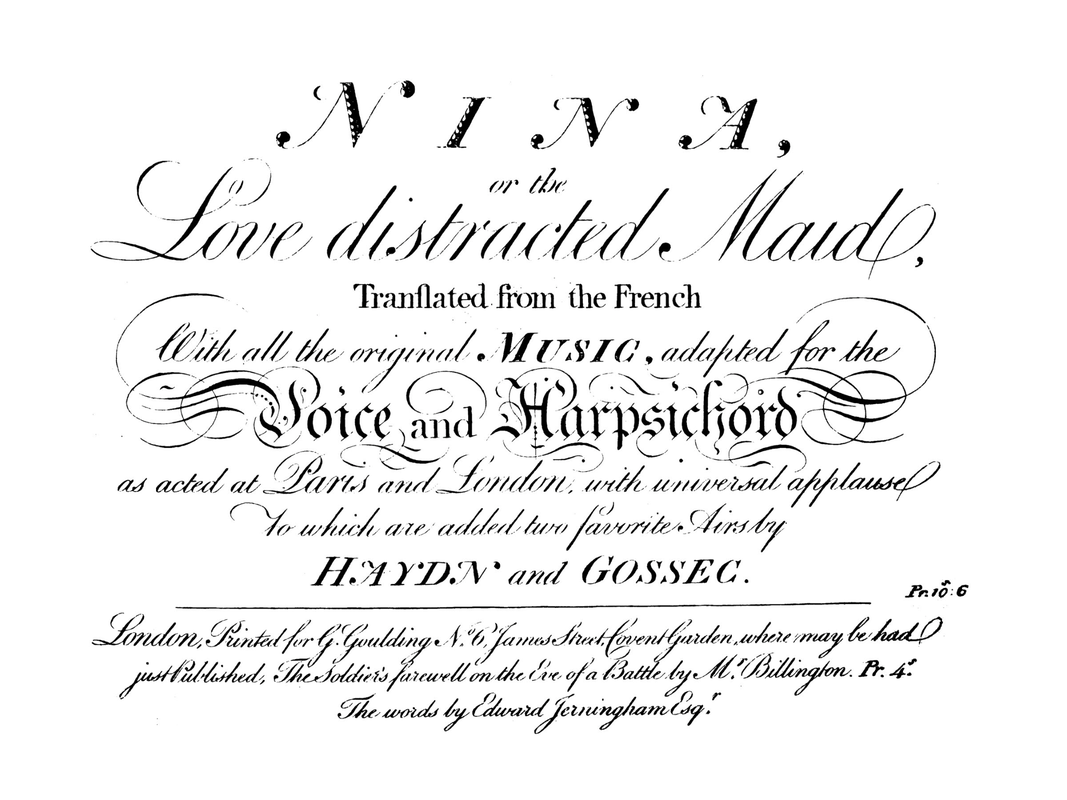 NINA,
or the
Love distracted Maid,
Tranſlated from the French
With all the original MUSIC, adapted for the
Voice and Harpsichord
as acted at Paris and London, with universal applause
To which are added two favorite Airs by
HAYDN and GOSSEC.
Pr. 10s: 6
London, Printed for G. Goulding No. 6, James Street, Covent Garden, where may be had
just Published, The Soldier's farewell on the Eve of a Battle by Mr. Billington. Pr. 4s.
The words by Edward Jerningham Esqr.